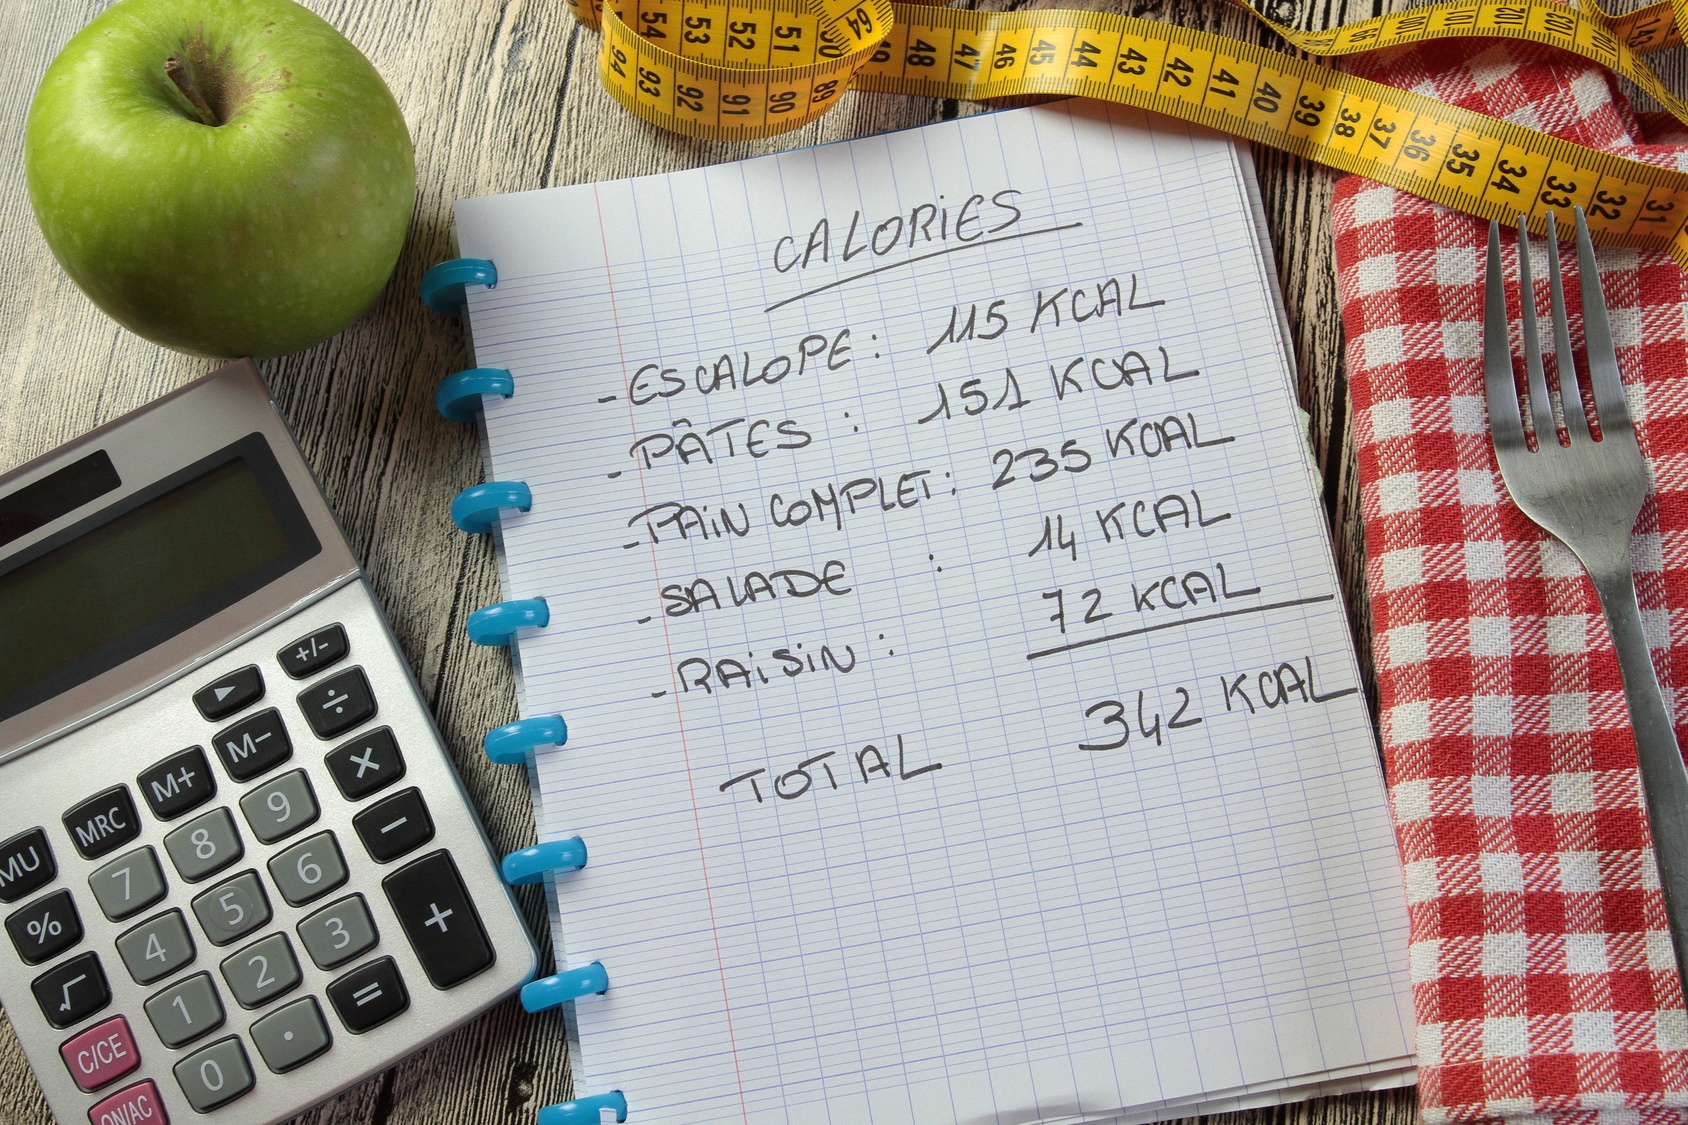 CALORIES
- ESCALOPE : 115 KCAL
- PÂTES : 151 KCAL
- PAIN COMPLET : 235 KCAL
- SALADE : 14 KCAL
- RAISIN : 72 KCAL
TOTAL 342 KCAL
54 53 52 51 50 64
94 93 92 91 90 89
49 48 47 46 45 44 43 42 41 40 39 38 37 36 35 34 33 32 31
+/-
▶ ÷
MU MRC M+ M− ×
% 7 8 9 −
√ 4 5 6 +
C/CE 1 2 3 =
ON/AC 0 .